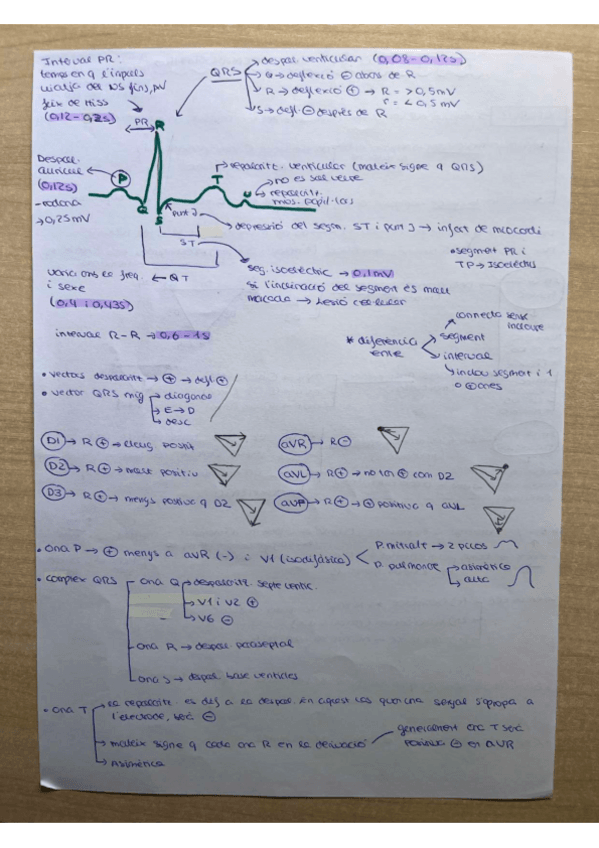 Interval PR:
temps en q l'impuls
viatja del NS fins AV
feix de Hiss
(0,12-0,2s)
PR
R
QRS
despol. ventricular (0,08-0,12s)
Q → deflexió ⊖ abans de R
R → deflexió ⊕ → R = >0,5mV
r = <0,5mV
S → defl. ⊖ després de R
Despol.
auricular
(0,12s)
-rodona
→0,25mV
P
Q
S
T
U
repolaritz. ventricular (mateix signe q QRS)
no es sol veure
repolaritz.
musc. papil·lars
punt J
ST
depressió del segm. ST i punt J → infart de miocardi
• segment PR i
TP → Isoelèctrics
seg. isoelèctric → 0,1mV
si l'inclinació del segment és molt
marcada → Lesió cel·lular
varia amb la freq. ← QT
i sexe
(0,4 i 0,43s)
interval R-R → 0,6-1s
* diferència
entre
segment
connecta sense
incloure
interval
inclou segment i 1
o ⊕ ones
• vectors despolaritz → ⊕ → defl ⊕
• vector QRS mig
diagonal
E → D
desc
D1 → R ⊕ →
positiu
D2 → R ⊕ → molt positiu
D3 → R ⊕ → menys positiu q D2
aVR → R ⊖
aVL → R ⊕ → no tan ⊕ com D2
aVF → R ⊕ → ⊕ positiva q aVL
• ona P → ⊕ menys a aVR (-) i V1 (isodifàsica)
P. mitral → 2 pics
P. pulmonar
asimètrica
alta
• complex QRS
ona Q → despolaritz. septe ventric.
V1 i V2 ⊕
V6 ⊖
ona R → despol. paraseptal
ona S → despol. base ventricles
• ona T
la repolaritz. es dif a la despol. En aquest cas quan una senyal s'apropa a
l'electrode, serà ⊖
mateix signe q cada ona R en la derivació
generalment ona T serà
positiva ⊖ en aVR
Asimètrica